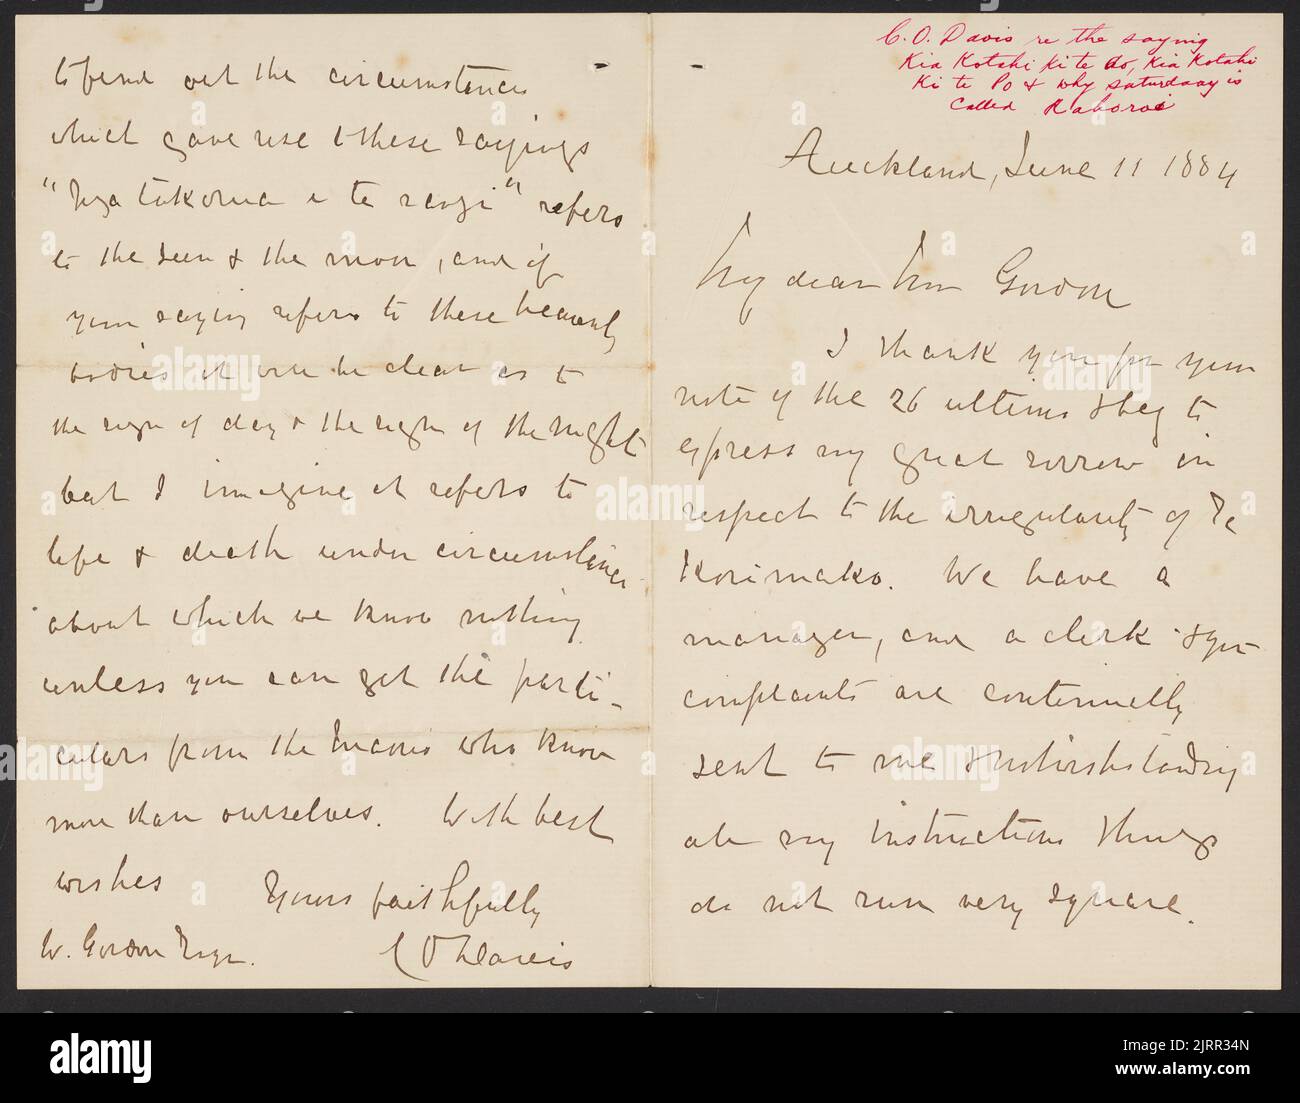 C. O. Davis re the saying
Kia Kotahi ki te Ao, Kia Kotahi
Ki te Po & why saturdaay is
called Rahoroi
Auckland, June 11 1884
My dear Mr Gordon
I thank you for your
note of the 26 ultimo & beg to
express my great sorrow in
respect to the irregularity of Te
Korimako. We have a
manager, and a clerk & yet
complaints are continually
sent to me & notwithstanding
all my instructions things
do not run very square.
to find out the circumstances
which gave rise to these sayings
"Nga tokorua i te rangi" refers
to the sun & the moon, and if
your saying refers to these heavenly
bodies it will be clear as to
the sign of day & the sign of the night
but I imagine it refers to
life & death under circumstances
about which we know nothing
unless you can get the parti-
culars from the Maoris who know
more than ourselves. With best
wishes
Yours faithfully
W. Gordon Esqr. C O Davis
alamy
Image ID: 2JRR34N
www.alamy.com